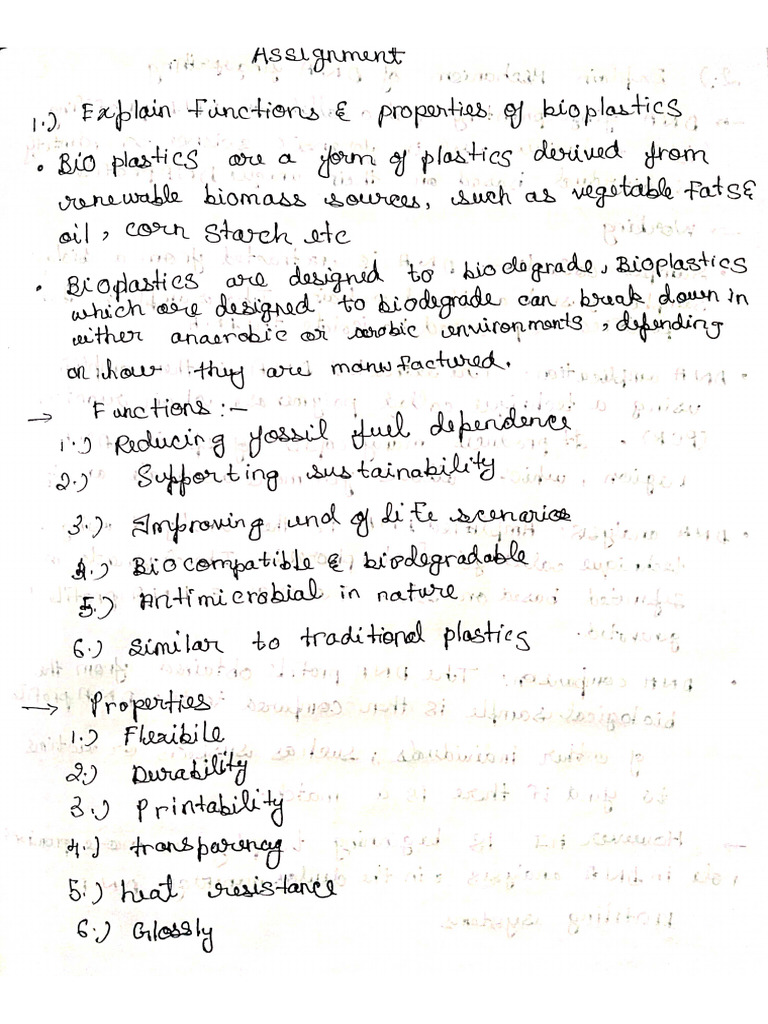 Assignment
1.) Explain Functions & properties of bioplastics
• Bio plastics are a form of plastics derived from
renewable biomass sources, such as vegetable Fats &
oil, corn Starch etc
• Bioplastics are designed to biodegrade, Bioplastics
which are designed to biodegrade can break down in
either anaerobic or aerobic environments, depending
on how they are manufactured.
→ Functions :-
1.) Reducing fossil fuel dependence
2.) Supporting sustainability
3.) Improving end of life scenarios
4.) Biocompatible & biodegradable
5.) Antimicrobial in nature
6.) Similar to traditional plastics
→ Properties
1.) Flexibile
2.) Durability
3.) Printability
4.) transparency
5.) heat resistance
6.) Glossly